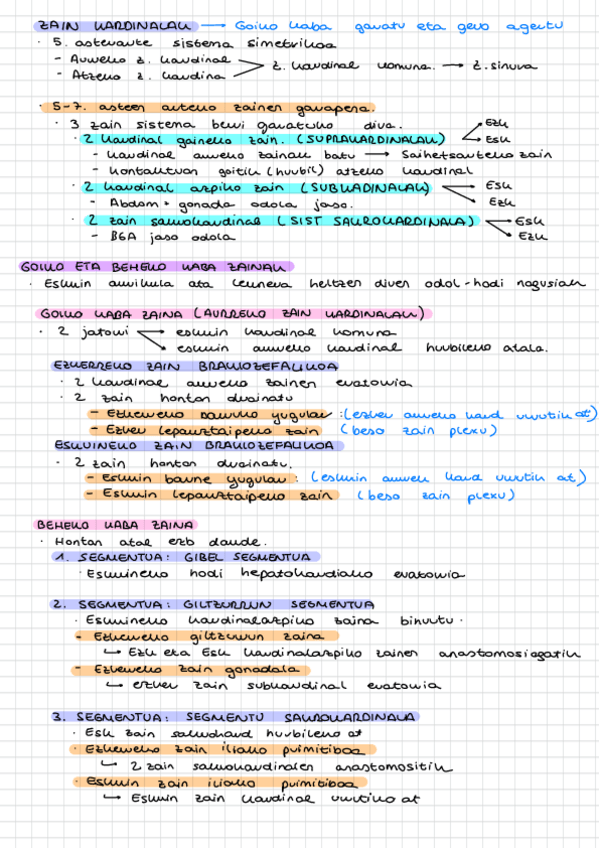 ZAIN KARDINALAK → Goiko kaba garatu eta gero agertu
· 5. asterarte sistema simetrikoa
- Aurreko z. kardinal
- Atzeko z. kardina > z. kardinal komuna. → z. sinura
· 5-7. asteen arteko zainen garapena.
· 3 zain sistema berri garatuko dira.
· 2 kardinal gaineko zain. (SUPRAKARDINALAK) Ezk Esk
- Kardinal aurreko zainak batu → Saihetsarteko zain
- Kontaktuan goitik (hurbil) atzeko kardinal
· 2 kardinal azpiko zain (SUBKADINALAK) Esk Ezk
- Abdom + gonada odola jaso.
· 2 zain sakrokardinal (SIST SAKROKARDINALA) Esk Ezk
- BGA jaso odola
GOIKO ETA BEHEKO KABA ZAINAK
· Eskuin aurikula ata keunera heltzen diren odol-hodi nagusiak
GOIKO KABA ZAINA (AURREKO ZAIN KARDINALAK)
· 2 jatorri → eskuin kardinal komuna
→ eskuin aurreko kardinal hurbileko atala.
EZKERREKO ZAIN BRAKIOZEFALIKOA
· 2 kardinal aurreko zainen eratorria
· 2 zain hontan drainatu
- Ezkerreko barruko yugular : (ezker aurreko kard urrutik at)
- Ezker lepauztaipeko zain (beso zain plexu)
ESKUINEKO ZAIN BRAKIOZEFALIKOA
· 2 zain hontan drainatu.
- Eskuin barne yugular : (eskuin aurrek kard urrutik at)
- Eskuin lepauztaipeko zain (beso zain plexu)
BEHEKO KABA ZAINA
· Hontan atal ezb daude.
1. SEGMENTUA: GIBEL SEGMENTUA
· Eskuineko hodi hepatokardiako eratorria
2. SEGMENTUA: GILTZURRUN SEGMENTUA
· Eskuineko kardinalazpiko zaina bihurtu.
- Ezkerreko giltzurrun zaina
↳ Ezk eta Esk kardinalazpiko zainen anastomosiagatik
- Ezkerreko zain gonadala
↳ ezker zain subkardinal eratorria
3. SEGMENTUA: SEGMENTU SAKROKARDINALA
· Esk zain sakrokard hurbileko at
· Ezkerreko zain iliako primitiboa
↳ 2 zain sakrokardinalen anastomositik
· Eskuin zain iliako primitiboa
↳ Eskuin zain kardinal urrutiko at